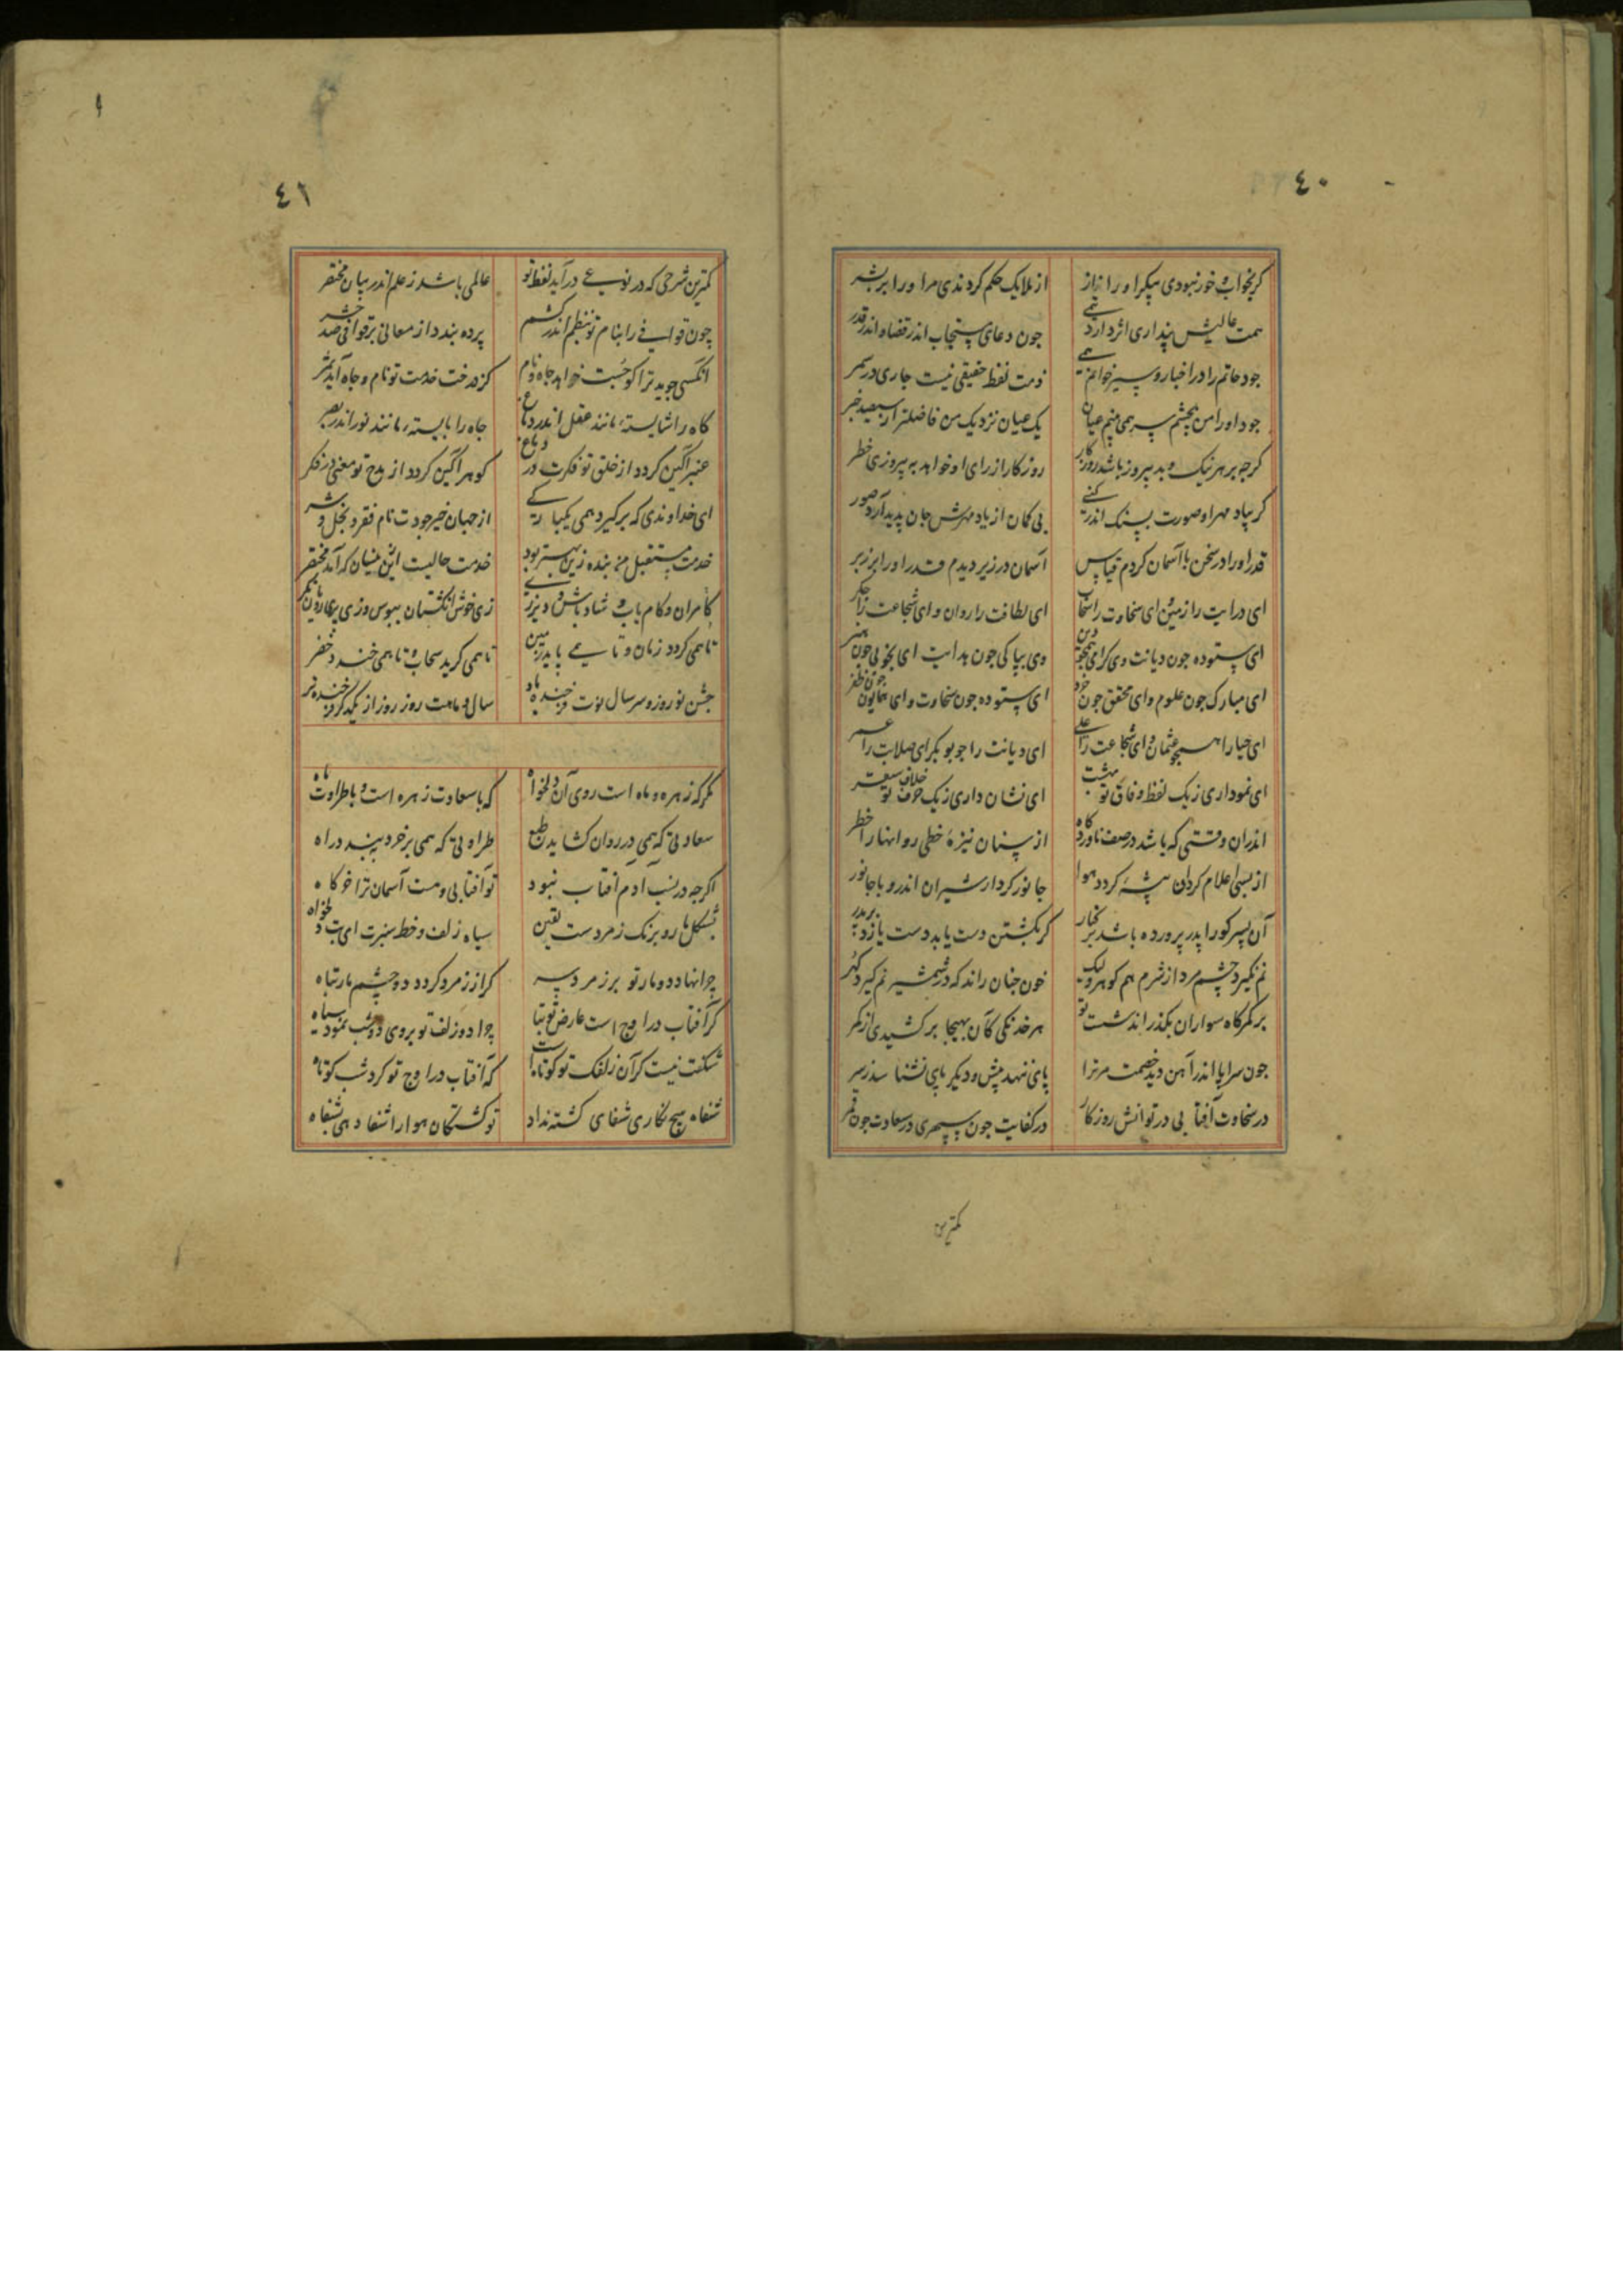 ٤٠
کر نخواب و خور نبودی پیکر او را نیاز
از ملایک حکم کردندی مر او را بر بشر
همت عالیش پنداری اثر دارد همی
چون دعای مستجاب اندر قضا و اندر قدر
جود حاتم را در اخبار و سیر خوانم همی
جود او را من بچشم سر همی بینم عیان
یک عیان نزدیک من فاضلتر از سیصد خبر
کرچه بر هر نیک و بد پیروز باشد روزکار
روزکار از رای او خواهد به پیروزی خطر
کر بیاد مهر او صورت بسنک اندر کنی
بی کمان از یاد مهرش جان پدید آرد صور
قدر او را در سخن با آسمان کردم قیاس
آسمان در زیر دیدم قدر او را بر زبر
ای لطافت را روان و ای شجاعت را جکر
ای ستوده چون دیانت وی کرامی همچو دین
ای مبارک چون علوم و ای محقق چون خرد
ای ستوده چون سخاوت و ای همایون چون ظفر
ای حیا را همچو عثمان و ای شجاعت را علی
ای دیانت را چو بوبکر ای صلابت را عمر
ای نموداری ز یک لفظ وفاق تو بهشت
ای نشان داری ز یک حرف خلاف تو سقر
اندران وقتی که باشد در صف ناوردکاه
از سنان نیزهٔ خطی روانها را خطر
از بسی اعلام کردان بیشه کردد هوا
جانور کردار شیران اندرو با جانور
آن پسر کو را پدر پرورده باشد بر کنار
کر بکشتن دست یابد دست یازد بر پدر
نم نکیرد چشم مرد از شرم هم کوهر ولیک
خون چنان راند که در شمشیر نم کیرد کهر
بر کمرکاه سواران بکذراند شست تو
هر خدنکی کآن بهیجا بر کشیدی از کمر
چون سراپا اندر آهن دید خصمت مر ترا
پای ننهد پیش و دیکر پای نشناسد ز سر
در سخاوت آفتابی در توانش روزکار
در کفایت چون سپهری در سعادت چون قمر
کمترین
٤١
کمترین شرحی که در نوعی درآید لفظ تو
عالمی باشد ز علم اندر بیان مختصر
چون قوافی را بنام تو بنظم اندر کشم
پرده بندد از معانی بر قوافی صد حشر
آنکسی جوید ترا کو جست خواهد جاه و نام
کز درخت خدمت تو نام و جاه آید ثمر
کاه را شایسته مانند عقل اندر دماغ
جاه را بایسته مانند نور اندر بصر
عنبر آکین کردد از خلق تو فکرت در دماغ
کوهر آکین کردد از مدح تو معنی در فکر
ای خداوندی که برکیرد همی یکبارکی
از جهان خیر جودت نام فقر و بخل و شر
خدمت مستقبل من بنده زین بهتر بود
خدمت حالیست این نسیان که آمد مختصر
کامران و کام یاب و شاد باش و دیر زی
تا همی کردد زمان و تا همی پاید زمین
تا همی کرید سحاب و تا همی خندد خضر
جشن نوروز و سر سال نوت فرخنده باد
سال و ماهت روز روز از یکدکر فرخنده تر
مکر که زهره و ماه است روی آن دلخواه
که با سعادت زهره است و با طراوت ماه
سعادتی که همی در روان کشاید طبع
طراوتی که همی بر خرد ببندد راه
اکرچه در نسب آدم آفتاب نبود
تو آفتابی و هست آسمان ترا خرکاه
بشکل مار و برنک زمردست یقین
سیاه زلف و خط سبزت ای بت دلخواه
چرا نهاد دو مار تو بر زمرد سر
کر از زمرد کردد دو چشم مار تباه
کر آفتاب در اوج است عارض تو بتا
چرا دو زلف تو بر وی دو شب نمود سیاه
شکفت نیست کر آن زلفک تو کوتاه است
که آفتاب در اوج تو کرد شب کوتاه
شفاه هیچ نکاری شفای کشته نداد
تو کشتکان هوا را شفا دهی بشفاه